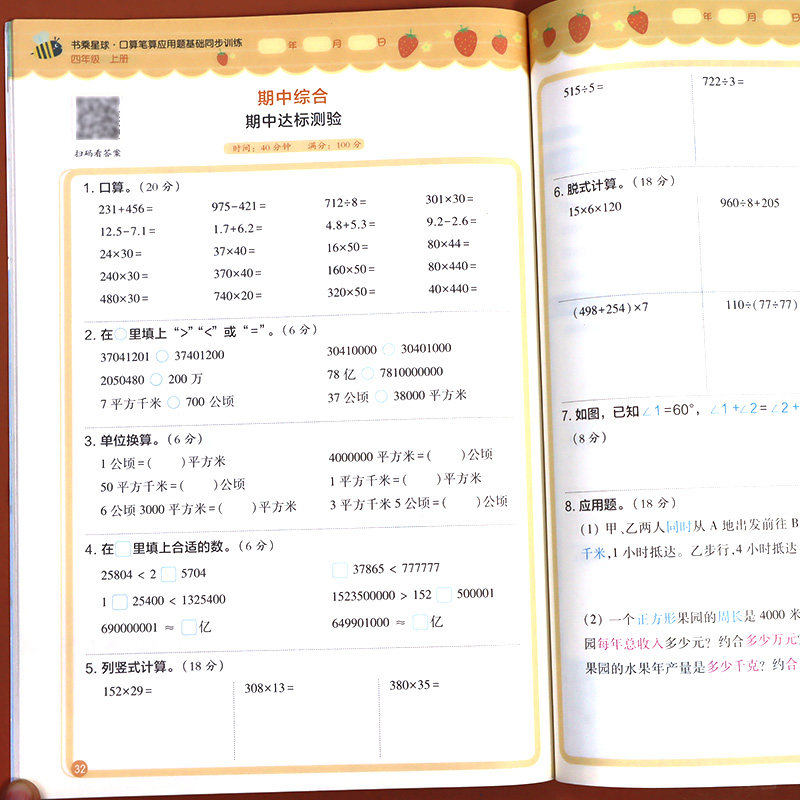 书乘星球·口算笔算应用题基础同步训练
四年级 上册
年 月 日
扫码看答案
期中综合
期中达标测验
时间：40分钟 满分：100分
1. 口算。（20分）
231+456= 975-421= 712÷8= 301×30=
12.5-7.1= 1.7+6.2= 4.8+5.3= 9.2-2.6=
24×30= 37×40= 16×50= 80×44=
240×30= 370×40= 160×50= 80×440=
480×30= 740×20= 320×50= 40×440=
2. 在○里填上“>”“<”或“=”。（6分）
37041201 ○ 37401200 30410000 ○ 30401000
2050480 ○ 200万 78亿 ○ 7810000000
7平方千米 ○ 700公顷 37公顷 ○ 38000平方米
3. 单位换算。（6分）
1公顷=( )平方米 4000000平方米=( )公顷
50平方千米=( )公顷 1平方千米=( )平方米
6公顷3000平方米=( )平方米 3平方千米5公顷=( )公顷
4. 在□里填上合适的数。（6分）
25804 < 2□5704 □37865 < 777777
1□25400 < 1325400 1523500000 > 152□500001
690000001 ≈ □亿 649901000 ≈ □亿
5. 列竖式计算。（18分）
152×29= 308×13= 380×35=
32
年 月 日
515÷5= 722÷3=
6. 脱式计算。（18分）
15×6×120 960÷8+205
(498+254)×7 110÷(77÷77)
7. 如图，已知∠1=60°，∠1+∠2=∠2+
（8分）
8. 应用题。（18分）
（1）甲、乙两人同时从A地出发前往B
千米，1小时抵达。乙步行，4小时抵达
（2）一个正方形果园的周长是4000米
园每年总收入多少元？约合多少万元
果园的水果年产量是多少千克？约合